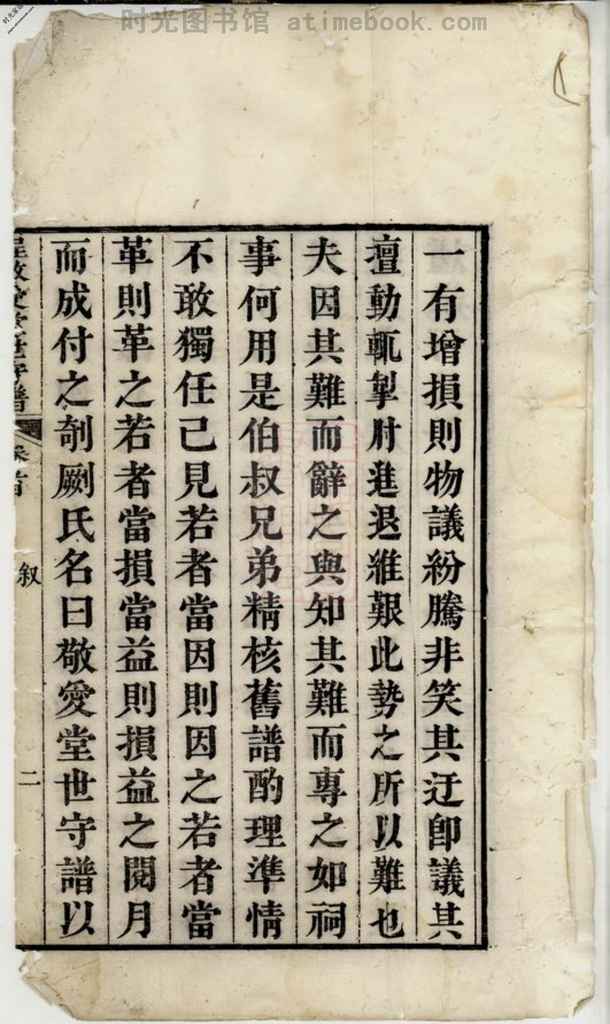 时光图书馆 atimebook.com
一有增損則物議紛騰非笑其迂卽議其
擅動輒掣肘進退維艱此勢之所以難也
夫因其難而辭之與知其難而專之如祠
事何用是伯叔兄弟精核舊譜酌理準情
不敢獨任己見若者當因則因之若者當
革則革之若者當損當益則損益之閱月
而成付之剞劂氏名曰敬愛堂世守譜以
敬愛堂世守譜
卷首
叙
二